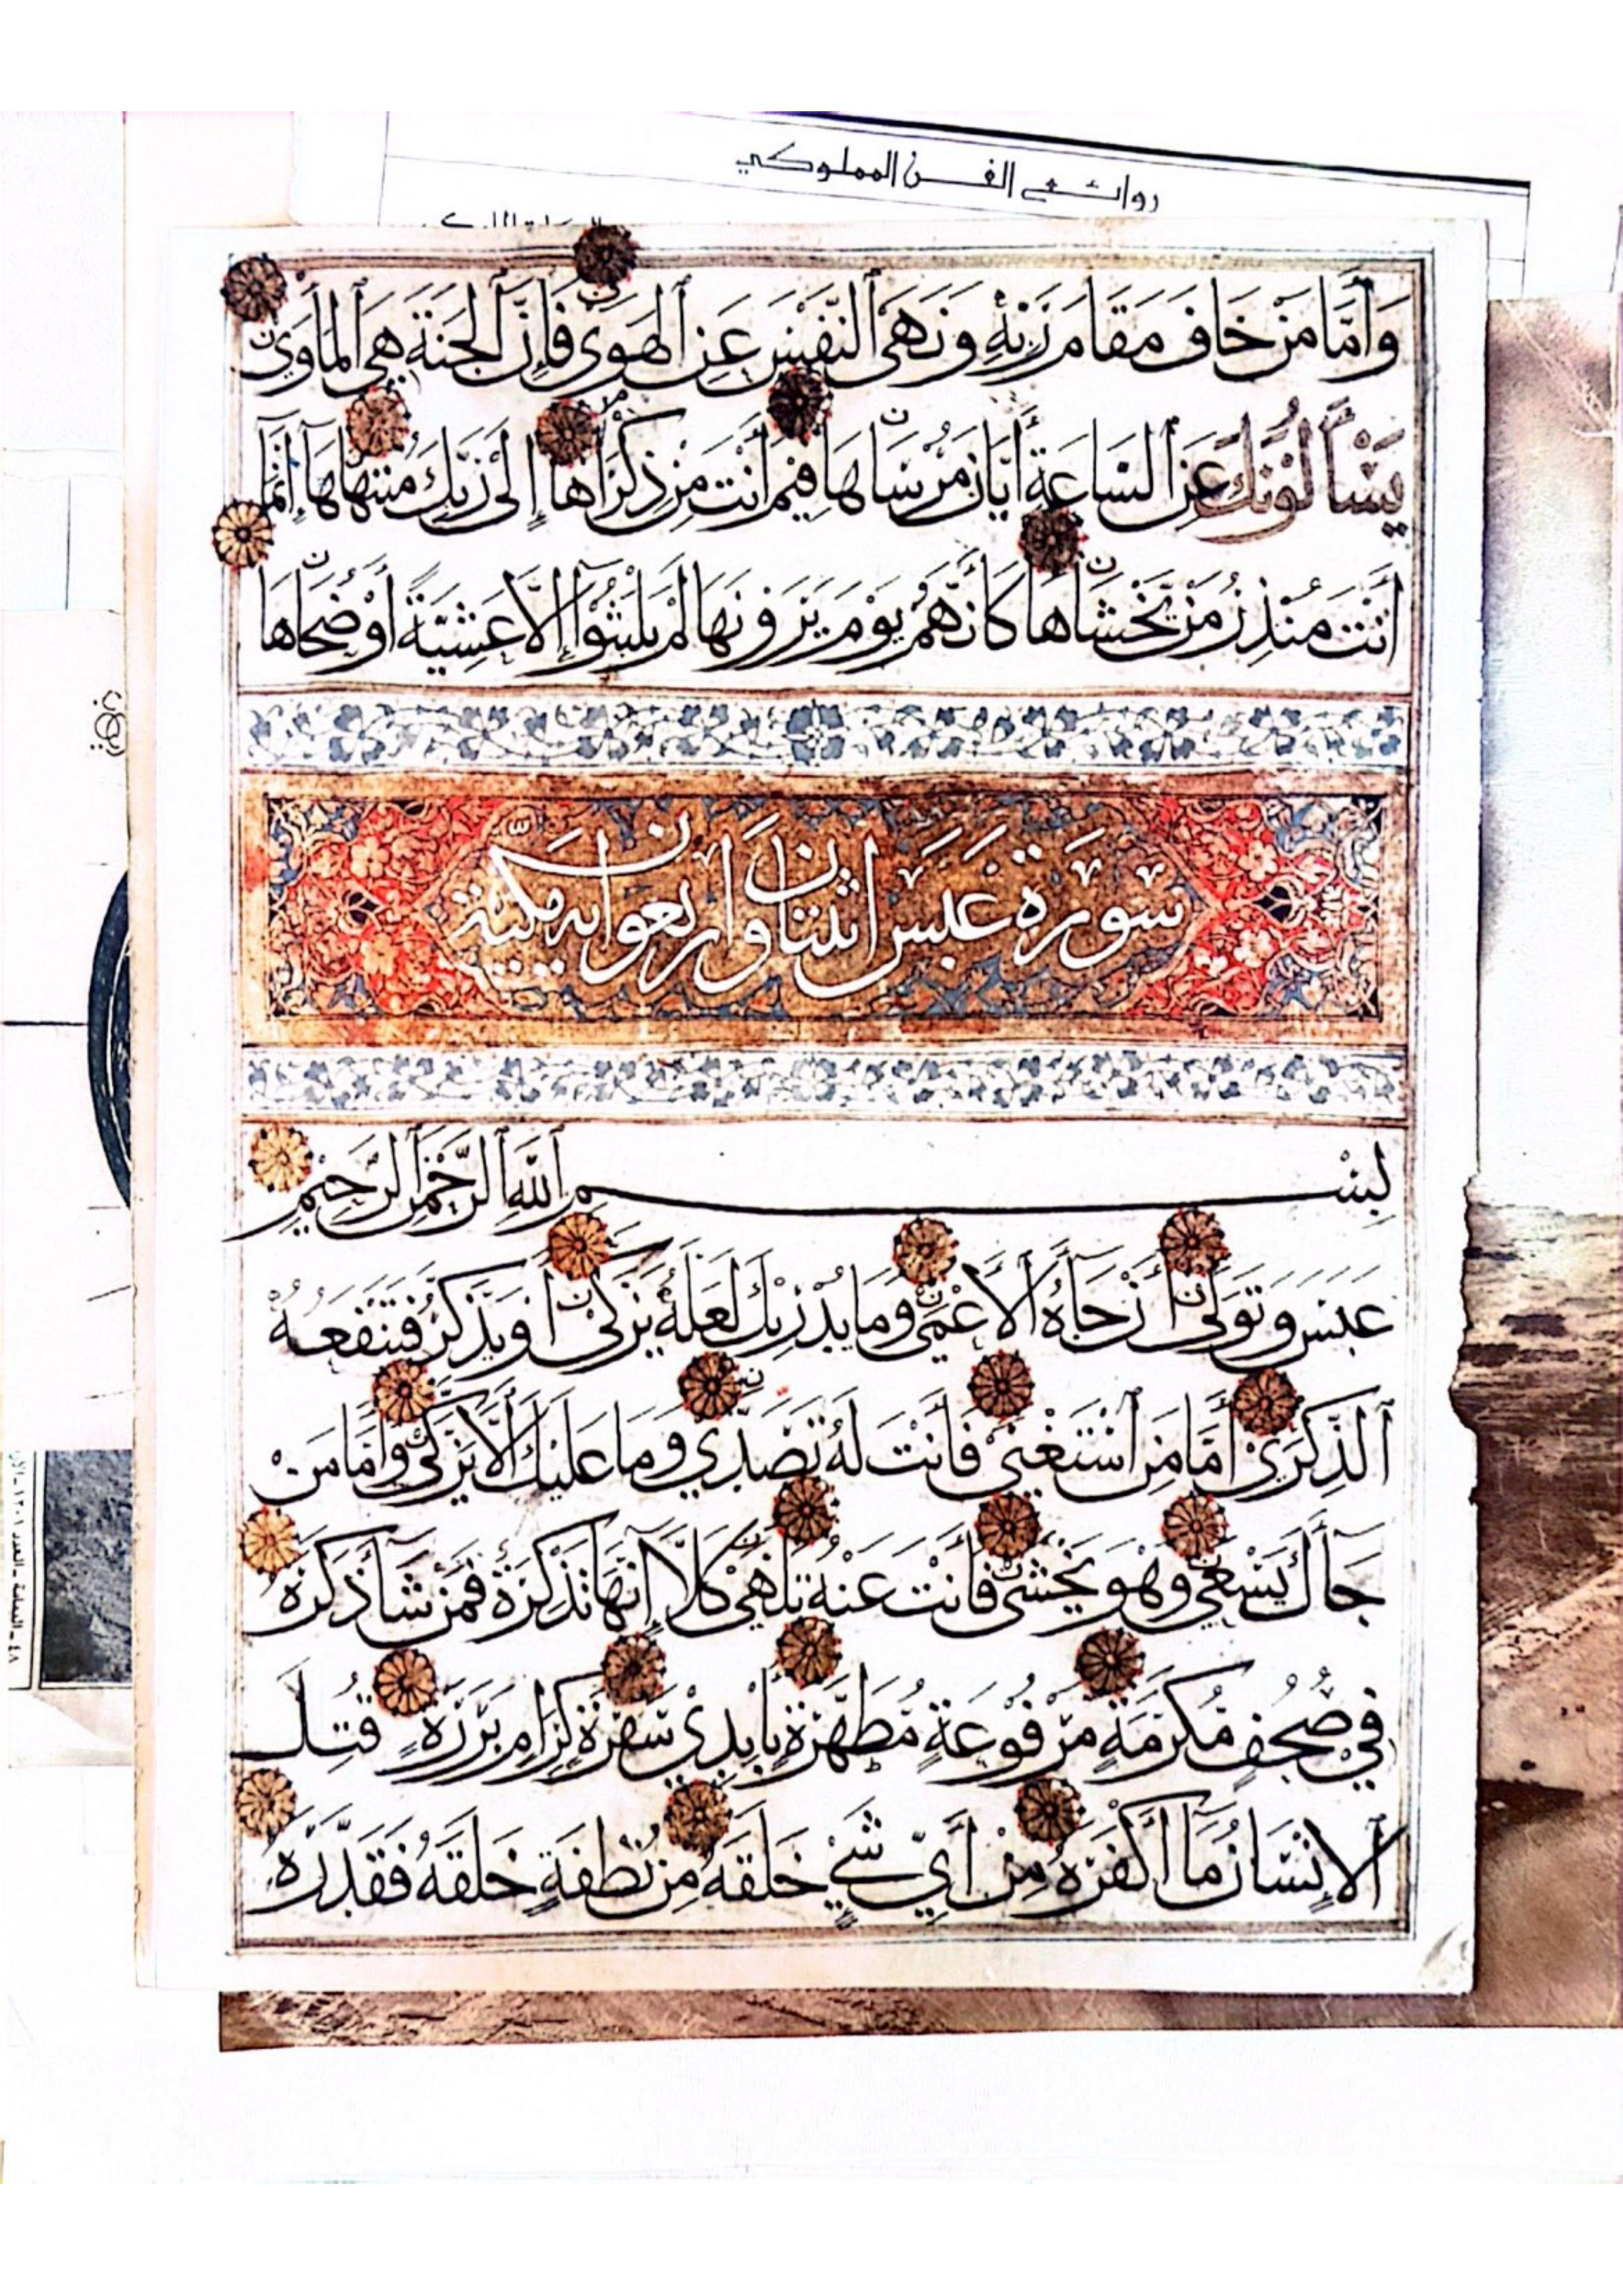 روائع الفن المملوكي
وَأَمَّا مَنْ خَافَ مَقَامَ رَبِّهِ وَنَهَى ٱلنَّفْسَ عَنِ ٱلْهَوَى فَإِنَّ ٱلْجَنَّةَ هِيَ ٱلْمَأْوَى
يَسْأَلُونَكَ عَنِ ٱلسَّاعَةِ أَيَّانَ مُرْسَاهَا فِيمَ أَنْتَ مِنْ ذِكْرَاهَا إِلَى رَبِّكَ مُنْتَهَاهَا إِنَّمَا
أَنْتَ مُنْذِرُ مَنْ يَخْشَاهَا كَأَنَّهُمْ يَوْمَ يَرَوْنَهَا لَمْ يَلْبَثُوٓا إِلَّا عَشِيَّةً أَوْ ضُحَاهَا
سورة عبس اثنتان واربعون اية مكية
بِسْمِ ٱللَّهِ ٱلرَّحْمَنِ ٱلرَّحِيمِ
عَبَسَ وَتَوَلَّى أَنْ جَآءَهُ ٱلْأَعْمَى وَمَا يُدْرِيكَ لَعَلَّهُ يَزَّكَّى أَوْ يَذَّكَّرُ فَتَنْفَعُهُ
ٱلذِّكْرَى أَمَّا مَنِ ٱسْتَغْنَى فَأَنْتَ لَهُ تَصَدَّى وَمَا عَلَيْكَ أَلَّا يَزَّكَّى وَأَمَّا مَنْ
جَآءَكَ يَسْعَى وَهْوَ يَخْشَى فَأَنْتَ عَنْهُ تَلَهَّى كَلَّا إِنَّهَا تَذْكِرَةٌ فَمَنْ شَآءَ ذَكَرَهُ
فِي صُحُفٍ مُكَرَّمَةٍ مَرْفُوعَةٍ مُطَهَّرَةٍ بِأَيْدِي سَفَرَةٍ كِرَامٍ بَرَرَةٍ قُتِلَ
ٱلْإِنْسَانُ مَآ أَكْفَرَهُ مِنْ أَيِّ شَيْءٍ خَلَقَهُ مِنْ نُطْفَةٍ خَلَقَهُ فَقَدَّرَهُ